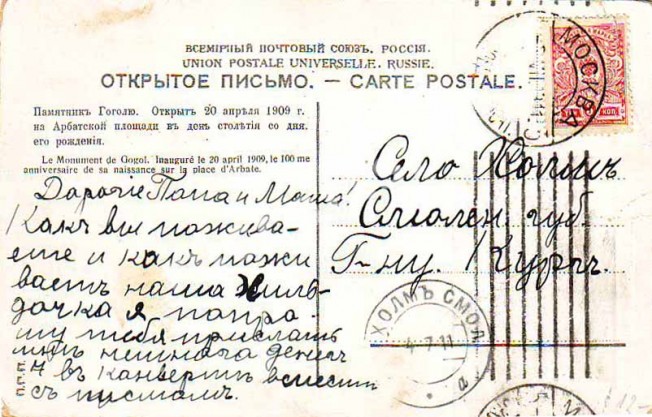 ВСЕМІРНЫЙ ПОЧТОВЫЙ СОЮЗЪ. РОССІЯ.
UNION POSTALE UNIVERSELLE. RUSSIE.
ОТКРЫТОЕ ПИСЬМО. — CARTE POSTALE.
Памятникъ Гоголю. Открытъ 20 апрѣля 1909 г.
на Арбатской площади въ день столѣтія со дня
его рожденія.
Le Monument de Gogol. Inauguré le 20 april 1909, le 100 me
anniversaire de sa naissance sur la place d'Arbate.
Дорогіе Папа и Маша!
Какъ вы пожива-
ете и какъ пожи
ваетъ наша
дочка я попро
шу тебя прислать
мнѣ немного денегъ
въ конвертѣ вместѣ
съ письмомъ.
П.Г.П.
МОСКВА
КОП
Село Холмъ
Смолен. губ.
Г-ну. Курчъ.
ХОЛМЪ СМОЛ
4 7 11
а